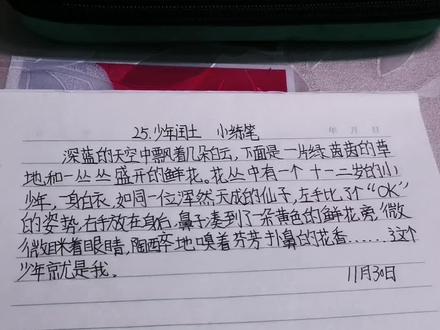 25.少年闰土 小练笔
年 月 日
深蓝的天空中飘着几朵白云,下面是一片绿茵茵的草
地和一丛丛盛开的鲜花。花丛中有一个十一二岁的小
少年,一身白衣,如同一位浑然天成的仙子,左手比了个“OK”
的姿势,右手放在身后,鼻子凑到了一朵黄色的鲜花旁,微
微眯着眼睛,陶醉地嗅着芬芳扑鼻的花香……这个
少年就是我。
11月30日